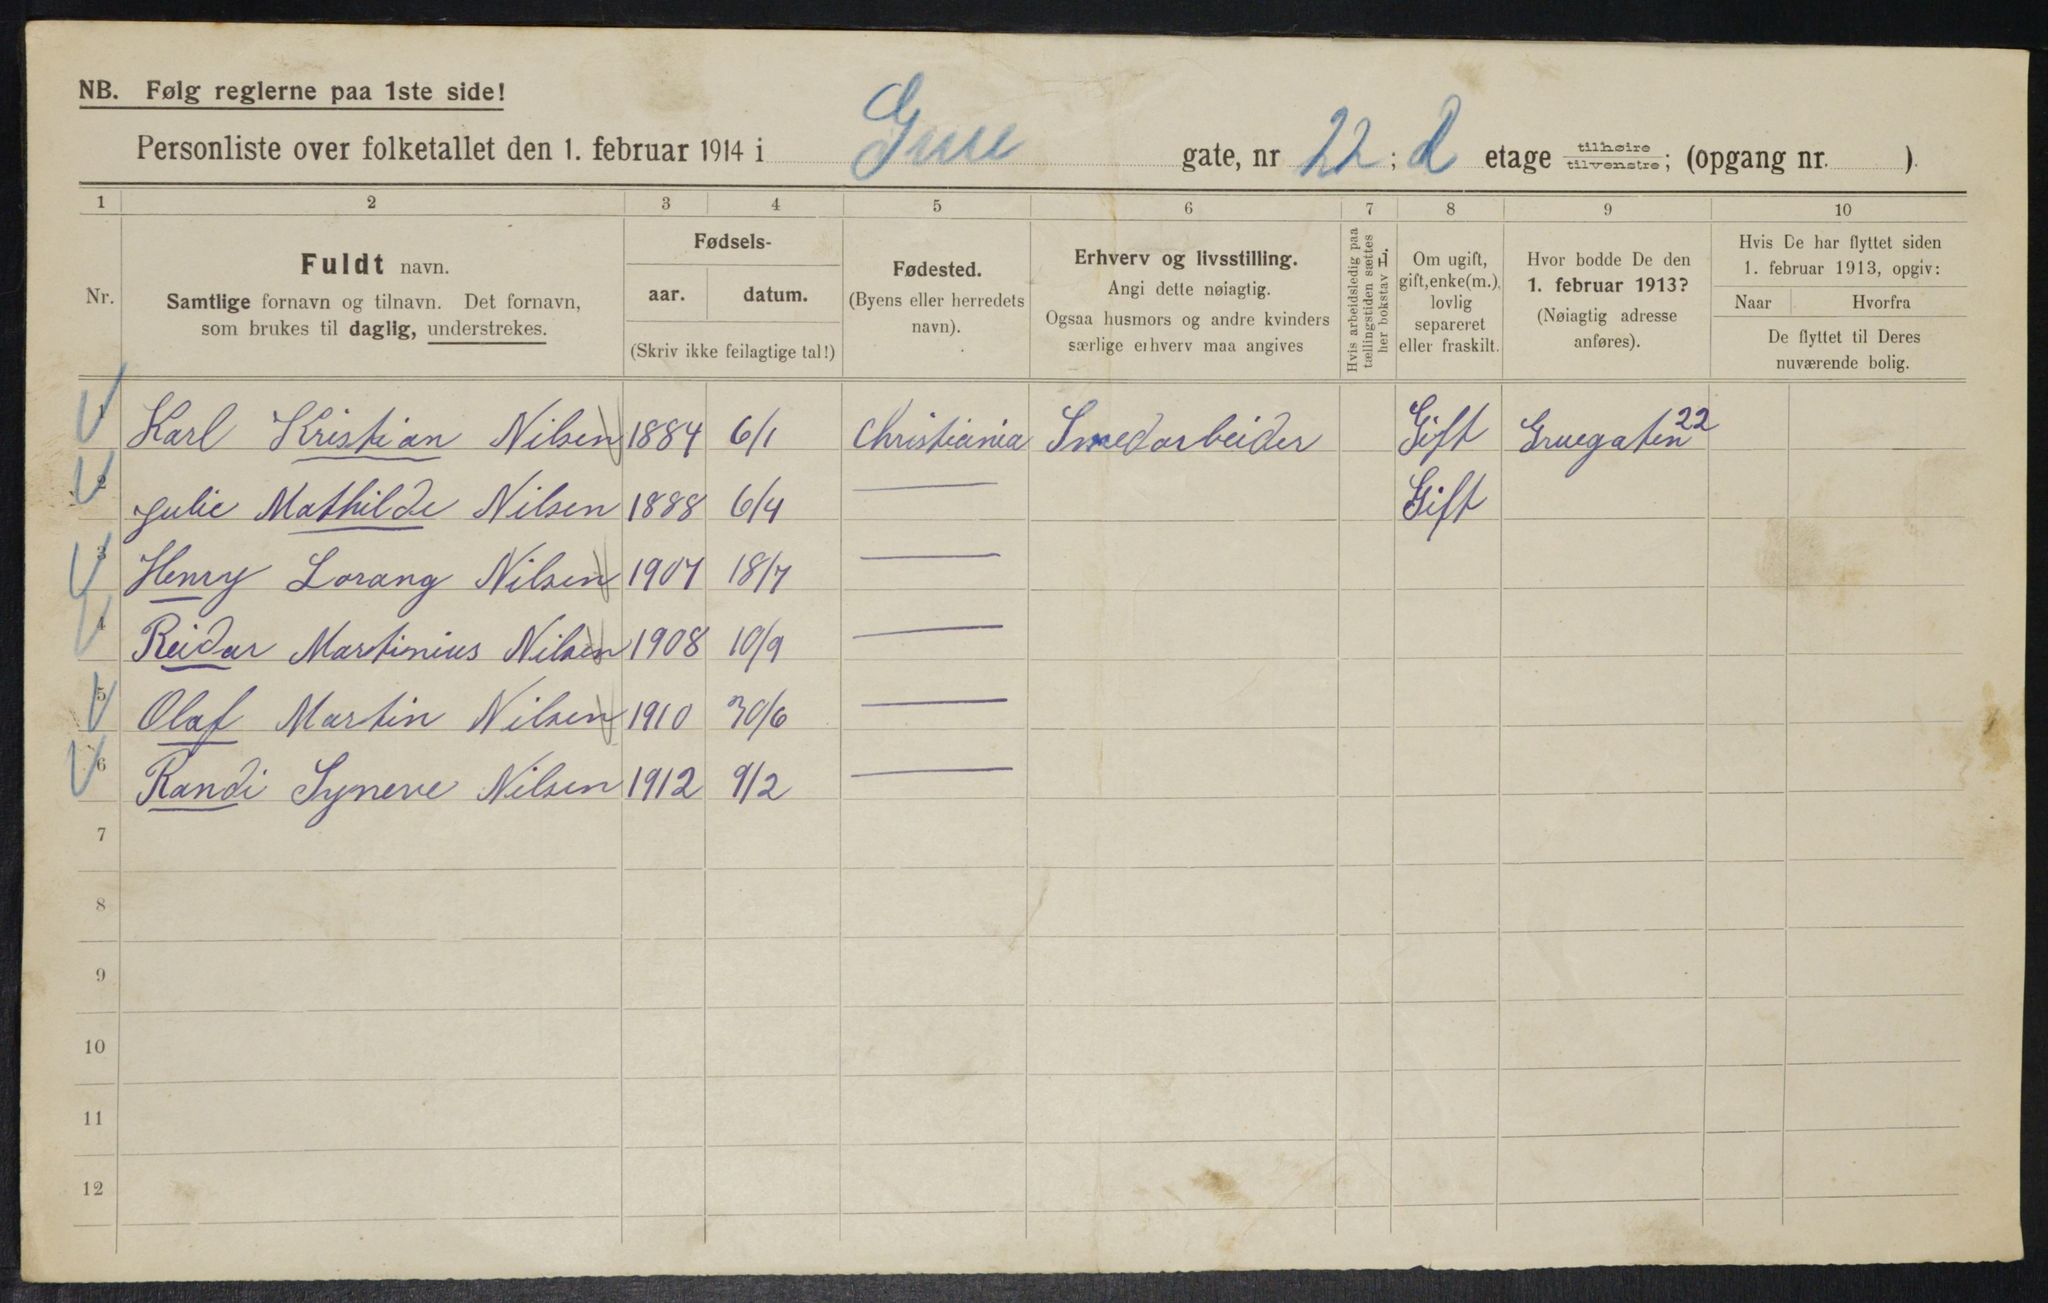 NB. Følg reglerne paa 1ste side!
Personliste over folketallet den 1. februar 1914 i Grue gate, nr 22; 2 etage tilhøire tilvenstre; (opgang nr. ).
1 2 3 4 5 6 7 8 9 10
Nr.
Fuldt navn.
Samtlige fornavn og tilnavn. Det fornavn,
som brukes til daglig, understrekes.
Fødsels-
aar. datum.
(Skriv ikke feilagtige tal!)
Fødested.
(Byens eller herredets
navn).
Erhverv og livsstilling.
Angi dette nøiagtig.
Ogsaa husmors og andre kvinders
særlige erhverv maa angives
Hvis arbeidsledig paa
tællingstiden sættes
her bokstav L.
Om ugift,
gift, enke(m.),
lovlig
separeret
eller fraskilt.
Hvor bodde De den
1. februar 1913?
(Nøiagtig adresse
anføres).
Hvis De har flyttet siden
1. februar 1913, opgiv:
Naar Hvorfra
De flyttet til Deres
nuværende bolig.
1 Karl Kristian Nilsen 1884 6/1 Christiania Smedarbeider Gift Gruegaten 22
2 Julie Mathilde Nilsen 1888 6/4 — Gift
3 Henry Lorang Nilsen 1907 18/7 —
4 Reidar Martinius Nilsen 1908 10/9 —
5 Olaf Martin Nilsen 1910 30/6 —
6 Randi Syneve Nilsen 1912 9/2 —
7
8
9
10
11
12